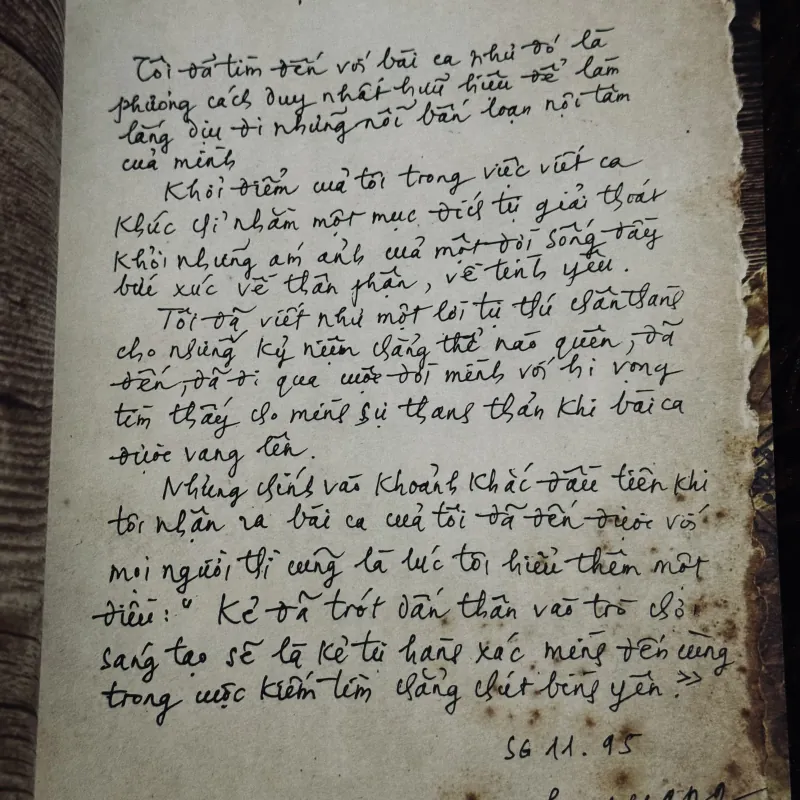 Tôi đã tìm đến với bài ca như đó là
phương cách duy nhất hữu hiệu để làm
lắng dịu đi những nỗi bấn loạn nội tâm
của mình
Khởi điểm của tôi trong việc viết ca
khúc chỉ nhằm một mục đích tự giải thoát
khỏi những ám ảnh của một đời sống đầy
bức xúc về thân phận, về tình yêu.
Tôi đã viết như một lời tự thú chân thành
cho những kỷ niệm chẳng thể nào quên, đã
đến, đã đi qua cuộc đời mình với hi vọng
tìm thấy cho mình sự thanh thản khi bài ca
được vang lên.
Nhưng chính vào khoảnh khắc đầu tiên khi
tôi nhận ra bài ca của tôi đã đến được với
mọi người thì cũng là lúc tôi hiểu thêm một
điều: " Kẻ đã trót dấn thân vào trò chơi
sáng tạo sẽ là kẻ tự hành xác mình đến cùng
trong cuộc kiếm tìm chẳng chút bình yên."
SG 11.95